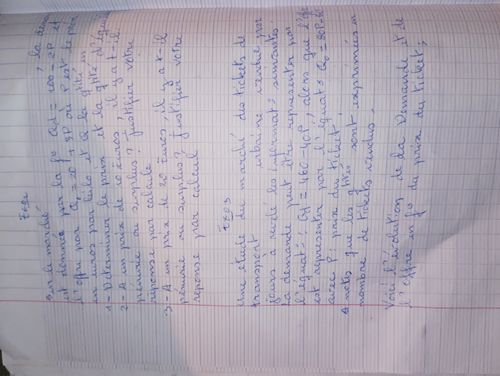 Exo 2
Sur le marché , la deman
est donnée par la f° Qd = 200 - 2P et
l'offre par Qs = 20 + 3P où P est le prix
en euros par kilo et Q la qtité en
1 - Déterminer le prix et la qtité d'équi
2 - A un prix de 10 euros, il y a t-il
pénurie ou surplus? justifier votre
réponse par calcule
3 - A un prix de 20 Euros, il y a t-il
pénurie ou surplus? justifier votre
réponse par calcul
Exo 3
Une étude du marché des tickets de
transport urbain vendu par
jours a révélé les informat° suivantes
La demande peut être representer par
l'équat°: Qd = 480 - 40P, alors que l'offre
est representer par l'équat° Qo = 80P
avec P: prix du ticket,
notez que les qtités sont exprimées en
nombre de tickets vendus.
Voici l'évolution de la Demande et de
l'offre en f° du prix du ticket;